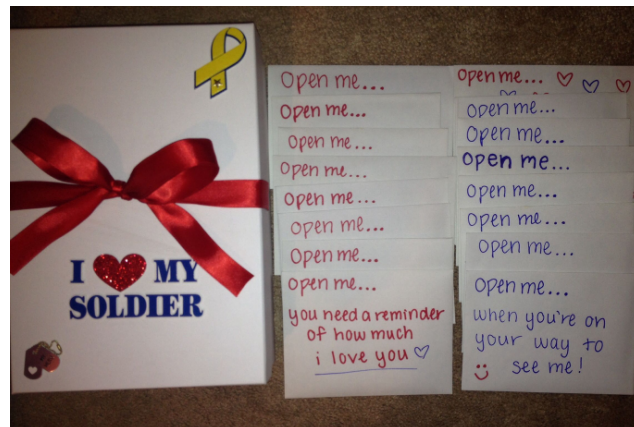 I ❤ MY
SOLDIER
Open me...
Open me...
Open me...
Open me...
Open me...
Open me...
Open me...
Open me...
you need a reminder
of how much
i love you ♡
Open me... ♡ ♡ ♡
Open me...
Open me...
Open me...
Open me...
Open me...
Open me...
Open me...
when you're on
your way to
see me!